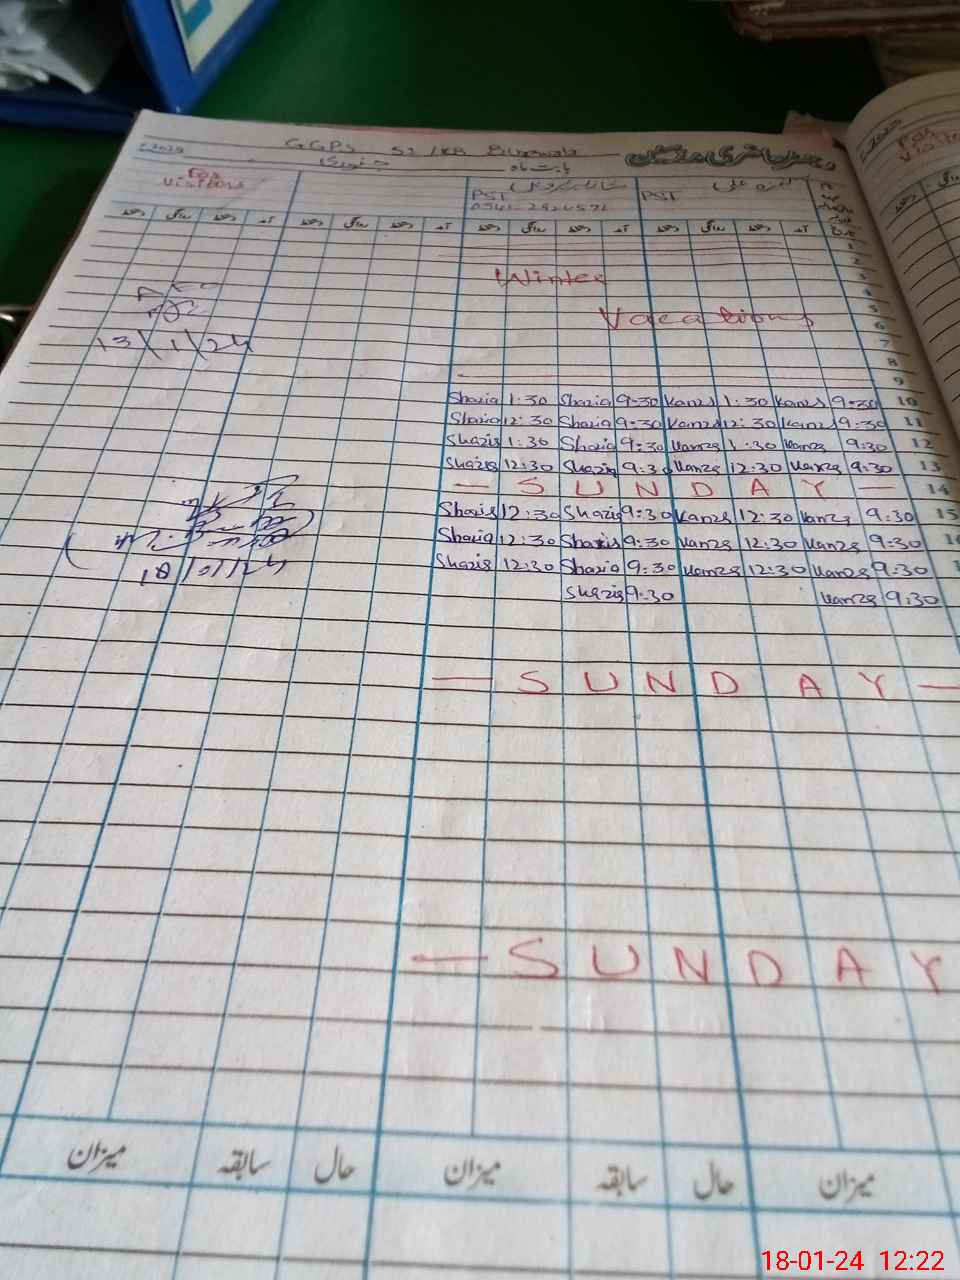 رجسٹر حاضری مدرسین
GGPS 52/KB
بابت ماہ جنوری 2024ء
For Visitors
PST
PST
آمد دستخط روانگی دستخط آمد دستخط روانگی دستخط آمد دستخط روانگی دستخط آمد دستخط روانگی دستخط
1
2
3
Winter
4
5
Vacations
6
7
8
9
Shazia 1:30 Shazia 9:30 Kanza 1:30 Kanza 9:30 10
Shazia 12:30 Shazia 9:30 Kanza 12:30 Kanza 9:30 11
Shazia 1:30 Shazia 9:30 Kanza 1:30 Kanza 9:30 12
Shazia 12:30 Shazia 9:30 Kanza 12:30 Kanza 9:30 13
— S U N D A Y — 14
Shazia 12:30 Shazia 9:30 Kanza 12:30 Kanza 9:30 15
Shazia 12:30 Shazia 9:30 Kanza 12:30 Kanza 9:30
Shazia 12:30 Shazia 9:30 Kanza 12:30 Kanza 9:30
Shazia 9:30 Kanza 9:30
— S U N D A Y —
— S U N D A Y
AEO
13/1/24
میزان حال سابقہ میزان حال سابقہ میزان
18-01-24 12:22
For Visitors